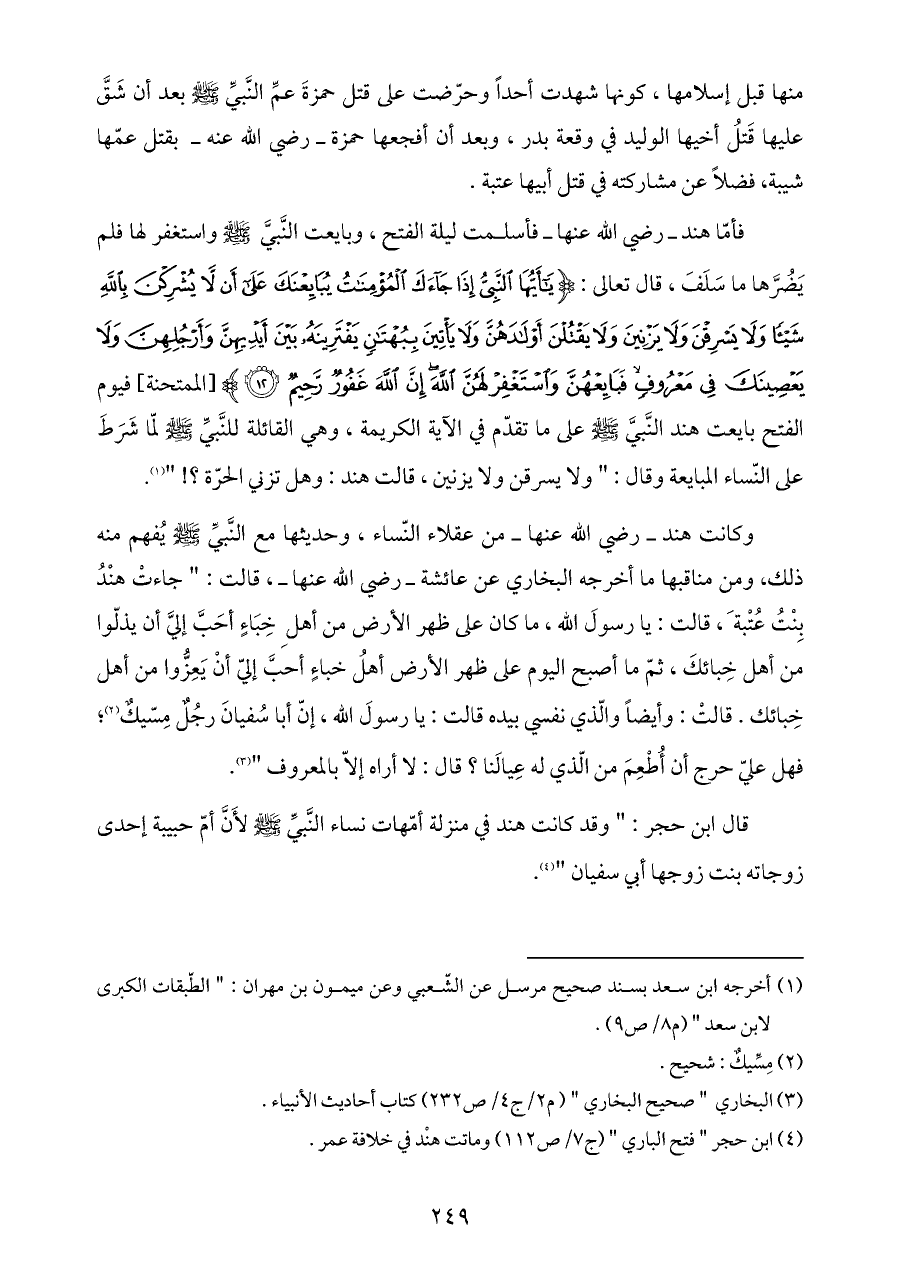 منها قبل إسلامها ، كونها شهدت أحداً وحرّضت على قتل حمزةَ عمِّ النَّبيِّ ﷺ بعد أن شَقَّ
عليها قَتلُ أخيها الوليد في وقعة بدر ، وبعد أن أفجعها حمزة ـ رضي الله عنه ـ بقتل عمّها
شيبة، فضلاً عن مشاركته في قتل أبيها عتبة .
فأمّا هند ـ رضي الله عنها ـ فأسلـمت ليلة الفتح ، وبايعت النَّبيَّ ﷺ واستغفر لها فلم
يَضُرَّها ما سَلَفَ ، قال تعالى : ﴿ يَـٰٓأَيُّهَا ٱلنَّبِىُّ إِذَا جَآءَكَ ٱلْمُؤْمِنَـٰتُ يُبَايِعْنَكَ عَلَىٰٓ أَن لَّا يُشْرِكْنَ بِٱللَّهِ
شَيْـًٔا وَلَا يَسْرِقْنَ وَلَا يَزْنِينَ وَلَا يَقْتُلْنَ أَوْلَـٰدَهُنَّ وَلَا يَأْتِينَ بِبُهْتَـٰنٍ يَفْتَرِينَهُۥ بَيْنَ أَيْدِيهِنَّ وَأَرْجُلِهِنَّ وَلَا
يَعْصِينَكَ فِى مَعْرُوفٍ ۙ فَبَايِعْهُنَّ وَٱسْتَغْفِرْ لَهُنَّ ٱللَّهَ ۖ إِنَّ ٱللَّهَ غَفُورٌ رَّحِيمٌ ﴿١٢﴾ ﴾ [الممتحنة] فيوم
الفتح بايعت هند النَّبيَّ ﷺ على ما تقدّم في الآية الكريمة ، وهي القائلة للنَّبيِّ ﷺ لمّا شَرَطَ
على النّساء المبايعة وقال : " ولا يسرقن ولا يزنين ، قالت هند : وهل تزني الحرّة ؟! "(١).
وكانت هند ـ رضي الله عنها ـ من عقلاء النّساء ، وحديثها مع النَّبيِّ ﷺ يُفهم منه
ذلك، ومن مناقبها ما أخرجه البخاري عن عائشة ـ رضي الله عنها ـ ، قالت : " جاءتْ هنْدُ
بِنْتُ عُتْبةَ ، قالت : يا رسولَ الله ، ما كان على ظهر الأرض من أهلِ خِبَاءٍ أحَبَّ إليَّ أن يذلّوا
من أهل خِبائكَ ، ثمّ ما أصبح اليوم على ظهر الأرض أهلُ خباءٍ أحبَّ إليّ أنْ يَعِزُّوا من أهل
خِبائك . قالتْ : وأيضاً والّذي نفسي بيده قالت : يا رسولَ الله ، إنّ أبا سُفيانَ رجُلٌ مِسّيكٌ(٢)؛
فهل عليّ حرج أن أُطْعِمَ من الّذي له عِيالَنا ؟ قال : لا أراه إلاّ بالمعروف "(٣).
قال ابن حجر : " وقد كانت هند في منزلة أمّهات نساء النَّبيِّ ﷺ لأَنَّ أمّ حبيبة إحدى
زوجاته بنت زوجها أبي سفيان "(٤).
(١) أخرجه ابن سـعد بسـند صحيح مرسـل عن الشّـعبي وعن ميمـون بن مهران : " الطّبقات الكبرى
لابن سعد " (م٨/ ص٩) .
(٢) مِسِّيكٌ : شحيح .
(٣) البخاري " صحيح البخاري " ( م٢/ ج٤/ ص٢٣٢) كتاب أحاديث الأنبياء .
(٤) ابن حجر " فتح الباري " (ج٧/ ص١١٢) وماتت هنْد في خلافة عمر .
٢٤٩